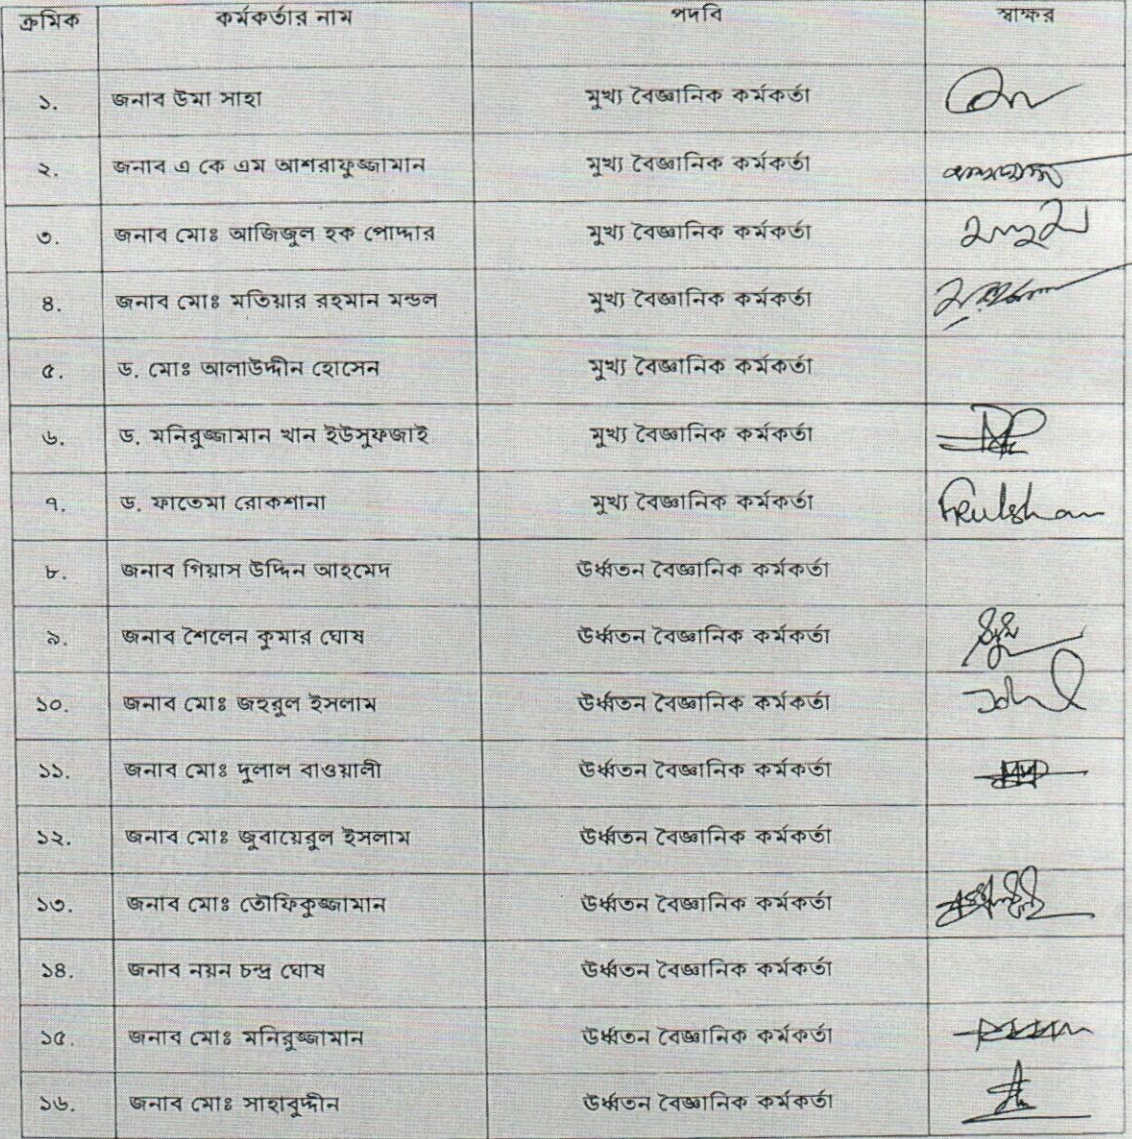 ক্রমিক কর্মকর্তার নাম পদবি স্বাক্ষর
১. জনাব উমা সাহা মুখ্য বৈজ্ঞানিক কর্মকর্তা
২. জনাব এ কে এম আশরাফুজ্জামান মুখ্য বৈজ্ঞানিক কর্মকর্তা
৩. জনাব মোঃ আজিজুল হক পোদ্দার মুখ্য বৈজ্ঞানিক কর্মকর্তা
৪. জনাব মোঃ মতিয়ার রহমান মন্ডল মুখ্য বৈজ্ঞানিক কর্মকর্তা
৫. ড. মোঃ আলাউদ্দীন হোসেন মুখ্য বৈজ্ঞানিক কর্মকর্তা
৬. ড. মনিরুজ্জামান খান ইউসুফজাই মুখ্য বৈজ্ঞানিক কর্মকর্তা
৭. ড. ফাতেমা রোকশানা মুখ্য বৈজ্ঞানিক কর্মকর্তা
৮. জনাব গিয়াস উদ্দিন আহমেদ উর্ধ্বতন বৈজ্ঞানিক কর্মকর্তা
৯. জনাব শৈলেন কুমার ঘোষ উর্ধ্বতন বৈজ্ঞানিক কর্মকর্তা
১০. জনাব মোঃ জহুরুল ইসলাম উর্ধ্বতন বৈজ্ঞানিক কর্মকর্তা
১১. জনাব মোঃ দুলাল বাওয়ালী উর্ধ্বতন বৈজ্ঞানিক কর্মকর্তা
১২. জনাব মোঃ জুবায়েরুল ইসলাম উর্ধ্বতন বৈজ্ঞানিক কর্মকর্তা
১৩. জনাব মোঃ তৌফিকুজ্জামান উর্ধ্বতন বৈজ্ঞানিক কর্মকর্তা
১৪. জনাব নয়ন চন্দ্র ঘোষ উর্ধ্বতন বৈজ্ঞানিক কর্মকর্তা
১৫. জনাব মোঃ মনিরুজ্জামান উর্ধ্বতন বৈজ্ঞানিক কর্মকর্তা
১৬. জনাব মোঃ সাহাবুদ্দীন উর্ধ্বতন বৈজ্ঞানিক কর্মকর্তা